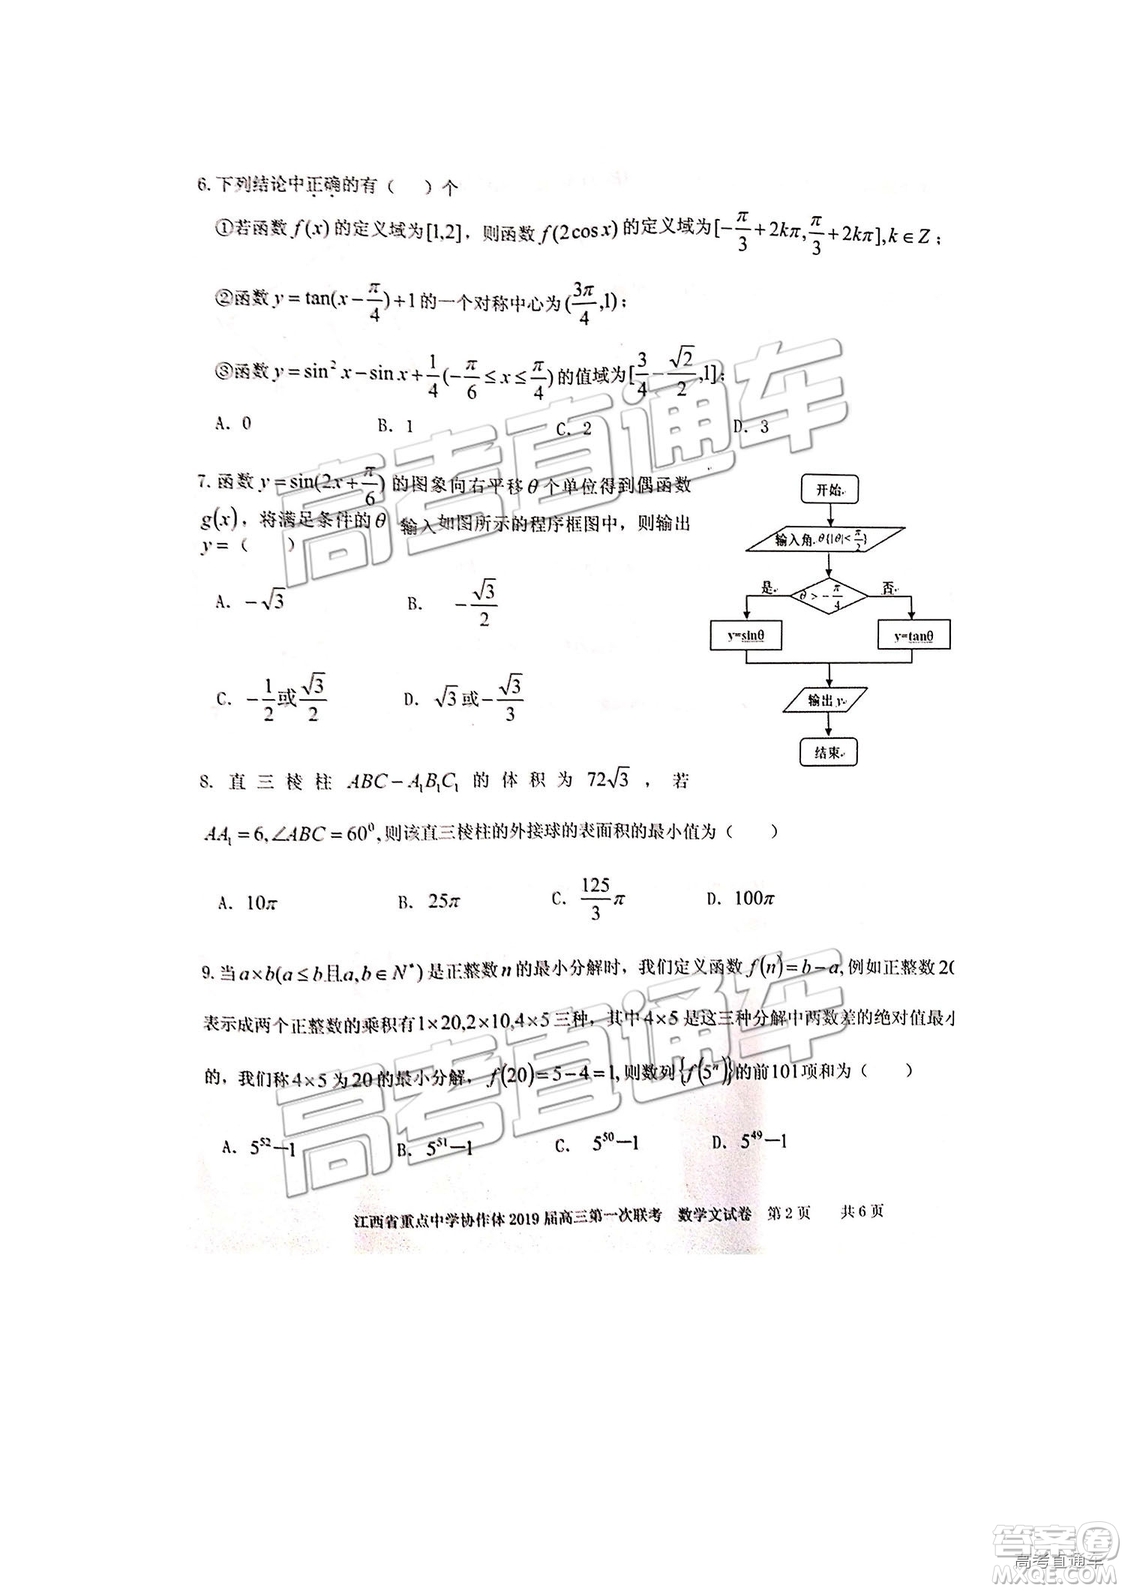 6.下列结论中正确的有（　　）个
①若函数 f(x) 的定义域为[1,2]，则函数 f(2cosx) 的定义域为[-π/3+2kπ,π/3+2kπ],k∈Z；
②函数 y=tan(x-π/4)+1的一个对称中心为(3π/4,1)；
③函数 y=sin²x-sinx+1/4(-π/6≤x≤π/4)的值域为[3/4-√2/2,1]；
A. 0　B. 1　C. 2　D. 3
7.函数 y=sin(2x+π/6)的图象向右平移θ个单位得到偶函数
g(x)，将满足条件的θ 输入如图所示的程序框图中，则输出
y=（　　）
A. -√3　B. -√3/2
C. -1/2或√3/2　D. √3或-√3/3
开始
输入角 θ{|θ|<π/2}
是　θ>-π/4　否
y=sinθ　y=tanθ
输出 y
结束
8. 直三棱柱 ABC-A₁B₁C₁ 的体积为 72√3，若
AA₁=6,∠ABC=60⁰,则该直三棱柱的外接球的表面积的最小值为（　　）
A. 10π　B. 25π　C. 125/3π　D. 100π
9.当a×b(a≤b且a,b∈N*)是正整数n的最小分解时，我们定义函数 f(n)=b-a,例如正整数2
表示成两个正整数的乘积有1×20,2×10,4×5三种，其中4×5是这三种分解中两数差的绝对值最小
的，我们称4×5为20的最小分解，f(20)=5-4=1,则数列{f(5ⁿ)}的前101项和为（　　）
A. 5⁵²-1　B. 5⁵¹-1　C. 5⁵⁰-1　D. 5⁴⁹-1
江西省重点中学协作体2019届高三第一次联考　数学文试卷　第2页　共6页
高考直通车
高考直通车
答案圈
高考直通车
MXQE.COM